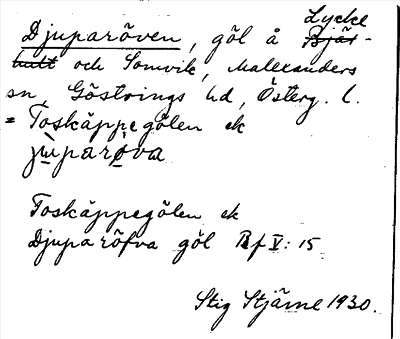 Lycke
Djuparöven, göl å Bjär-
hult och Somvik, Malexanders
sn, Göstrings hd, Österg. l.
= Toskäppegölen ek
jùparòva
Toskäppegölen ek
Djuparöfva göl Rf V: 15
Stig Stjärne 1930.